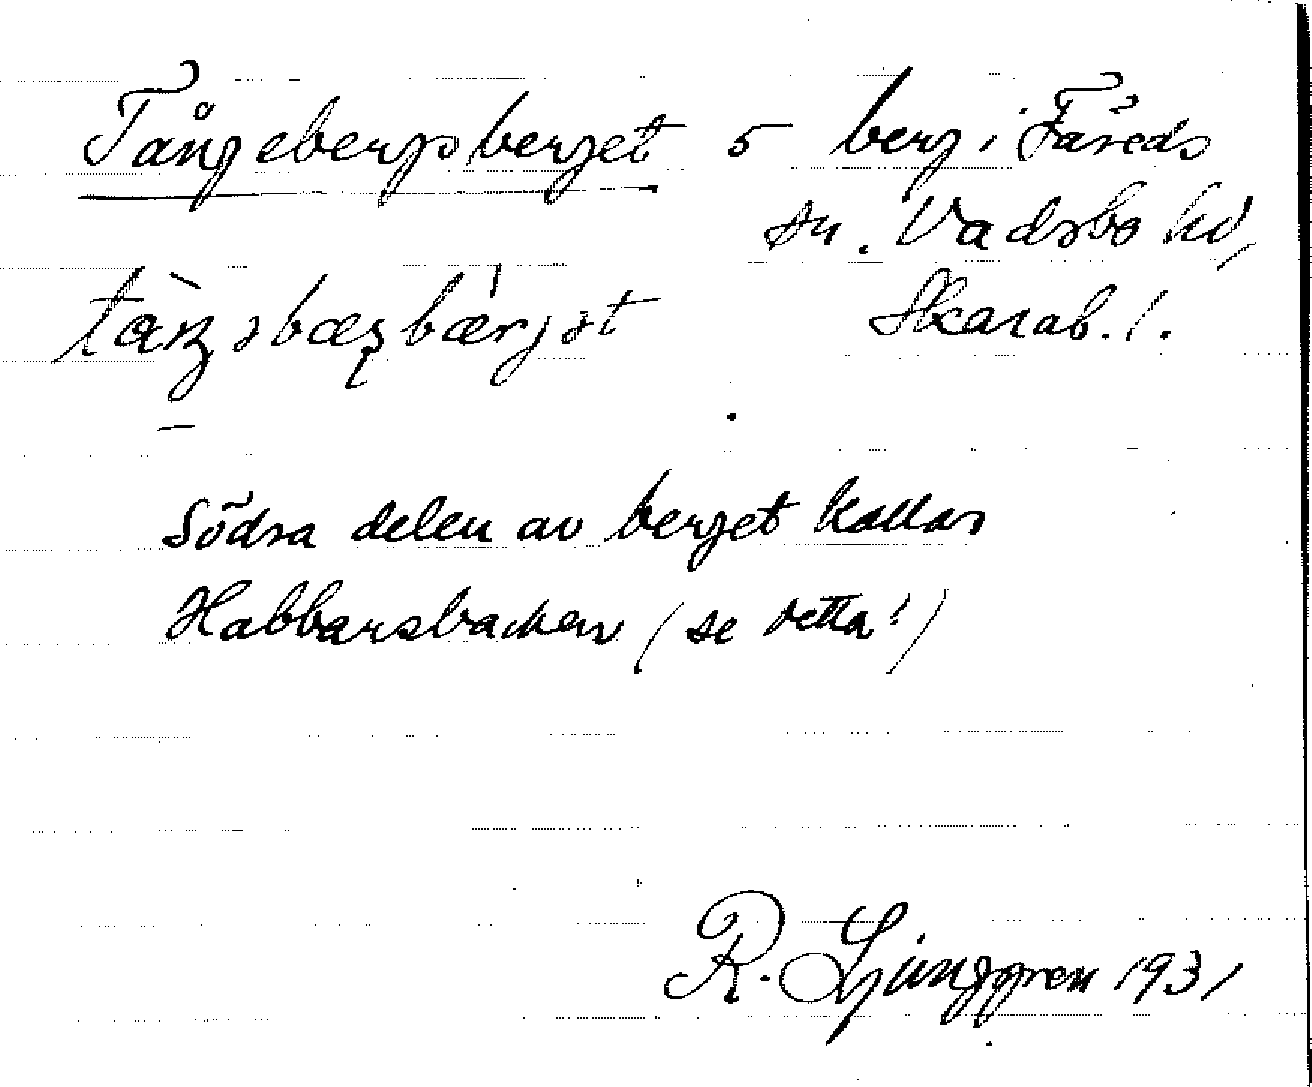 Tångebergsberget 5 berg i Fåreds
sn. Vadsbo hd,
Skarab. l.
Södra delen av berget kallas
Habbarsbacken (se detta!)
R. Ljunggren 1931